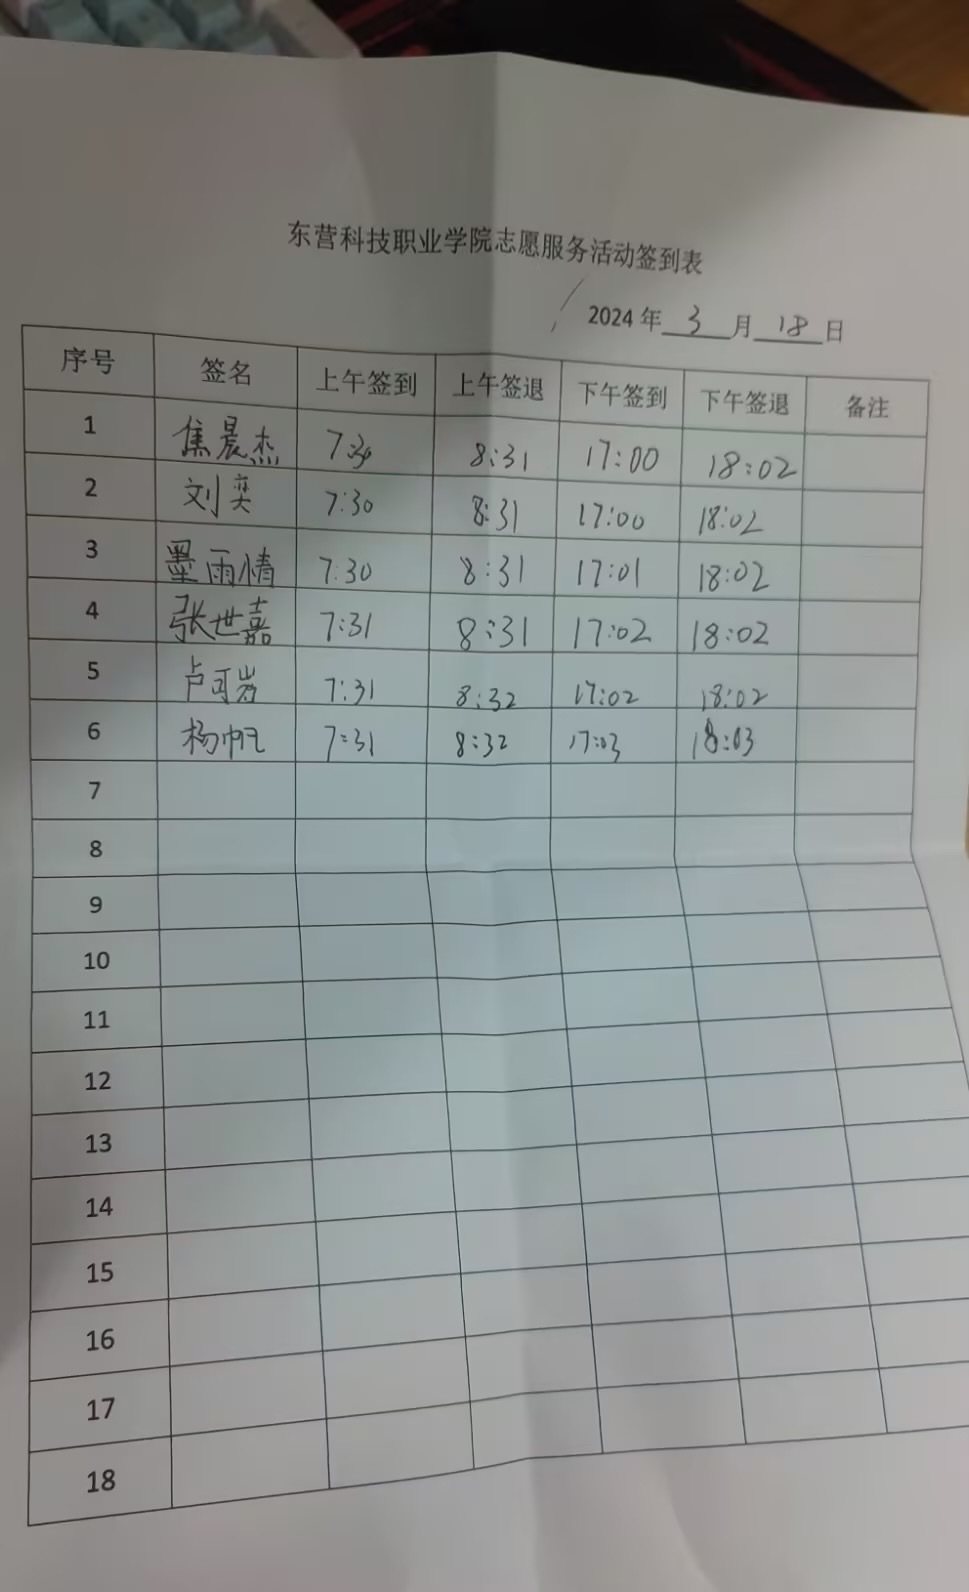 东营科技职业学院志愿服务活动签到表
2024 年 3 月 18 日
序号 签名 上午签到 上午签退 下午签到 下午签退 备注
1 焦晨杰 7:30 8:31 17:00 18:02
2 刘奕 7:30 8:31 17:00 18:02
3 墨雨情 7:30 8:31 17:01 18:02
4 张世嘉 7:31 8:31 17:02 18:02
5 卢可岩 7:31 8:32 17:02 18:02
6 杨帆 7:31 8:32 17:03 18:03
7
8
9
10
11
12
13
14
15
16
17
18